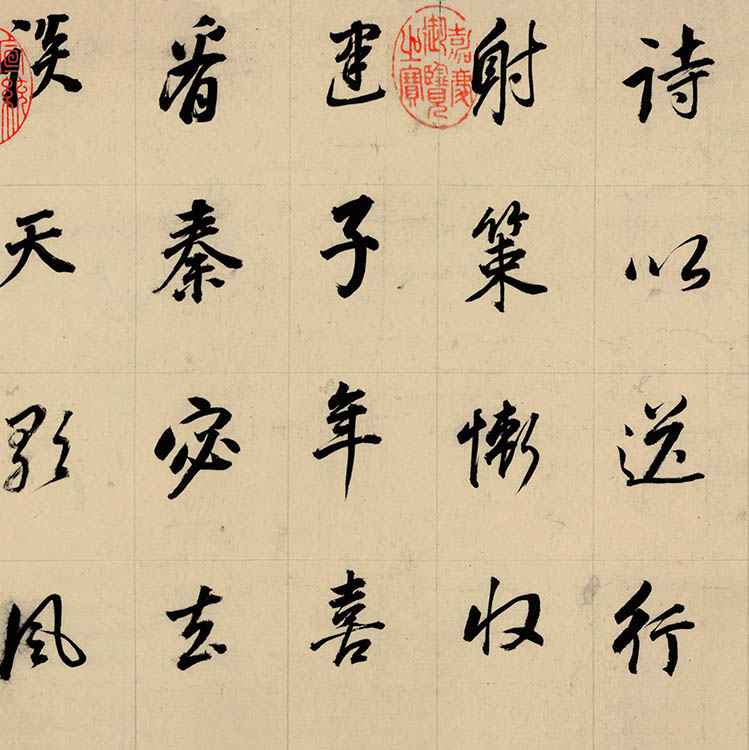 詩以送行
射策慚收
建子年喜
看秦宓去
談天風
嘉慶御覽之寶
宣統